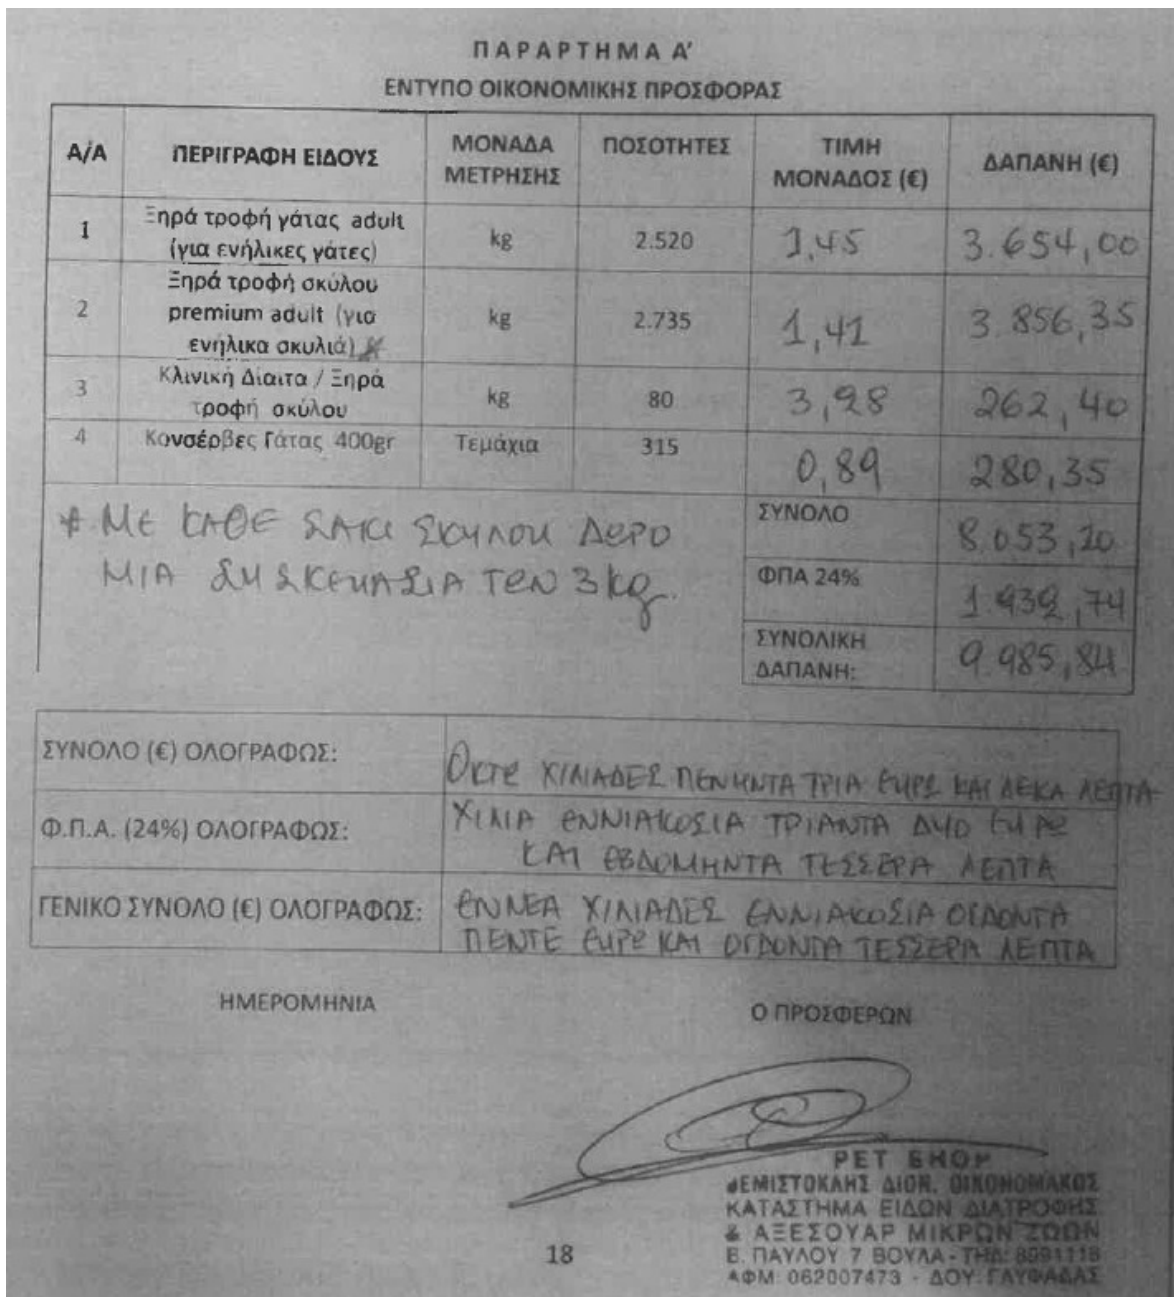 ΠΑΡΑΡΤΗΜΑ Α'
ΕΝΤΥΠΟ ΟΙΚΟΝΟΜΙΚΗΣ ΠΡΟΣΦΟΡΑΣ
Α/Α ΠΕΡΙΓΡΑΦΗ ΕΙΔΟΥΣ ΜΟΝΑΔΑ ΜΕΤΡΗΣΗΣ ΠΟΣΟΤΗΤΕΣ ΤΙΜΗ ΜΟΝΑΔΟΣ (€) ΔΑΠΑΝΗ (€)
1 Ξηρά τροφή γάτας adult (για ενήλικες γάτες) kg 2.520 1,45 3.654,00
2 Ξηρά τροφή σκύλου premium adult (για ενήλικα σκυλιά) * kg 2.735 1,41 3.856,35
3 Κλινική Δίαιτα / Ξηρά τροφή σκύλου kg 80 3,28 262,40
4 Κονσέρβες Γάτας 400gr Τεμάχια 315 0,89 280,35
* ΜΕ ΚΑΘΕ ΣΑΚΙ ΣΚΥΛΟΥ ΔΩΡΟ
ΜΙΑ ΣΥΣΚΕΥΑΣΙΑ ΤΩΝ 3kg.
ΣΥΝΟΛΟ 8.053,10
ΦΠΑ 24% 1.932,74
ΣΥΝΟΛΙΚΗ ΔΑΠΑΝΗ: 9.985,84
ΣΥΝΟΛΟ (€) ΟΛΟΓΡΑΦΩΣ: ΟΚΤΩ ΧΙΛΙΑΔΕΣ ΠΕΝΗΝΤΑ ΤΡΙΑ ΕΥΡΩ ΚΑΙ ΔΕΚΑ ΛΕΠΤΑ
Φ.Π.Α. (24%) ΟΛΟΓΡΑΦΩΣ: ΧΙΛΙΑ ΕΝΝΙΑΚΟΣΙΑ ΤΡΙΑΝΤΑ ΔΥΟ ΕΥΡΩ
ΚΑΙ ΕΒΔΟΜΗΝΤΑ ΤΕΣΣΕΡΑ ΛΕΠΤΑ
ΓΕΝΙΚΟ ΣΥΝΟΛΟ (€) ΟΛΟΓΡΑΦΩΣ: ΕΝΝΕΑ ΧΙΛΙΑΔΕΣ ΕΝΝΙΑΚΟΣΙΑ ΟΓΔΟΝΤΑ
ΠΕΝΤΕ ΕΥΡΩ ΚΑΙ ΟΓΔΟΝΤΑ ΤΕΣΣΕΡΑ ΛΕΠΤΑ
ΗΜΕΡΟΜΗΝΙΑ Ο ΠΡΟΣΦΕΡΩΝ
PET SHOP
ΘΕΜΙΣΤΟΚΛΗΣ ΔΙΟΝ. ΟΙΚΟΝΟΜΑΚΟΣ
ΚΑΤΑΣΤΗΜΑ ΕΙΔΩΝ ΔΙΑΤΡΟΦΗΣ
& ΑΞΕΣΟΥΑΡ ΜΙΚΡΩΝ ΖΩΩΝ
Β. ΠΑΥΛΟΥ 7 ΒΟΥΛΑ - ΤΗΛ:
ΑΦΜ: 062007473 - ΔΟΥ: ΓΛΥΦΑΔΑΣ
18